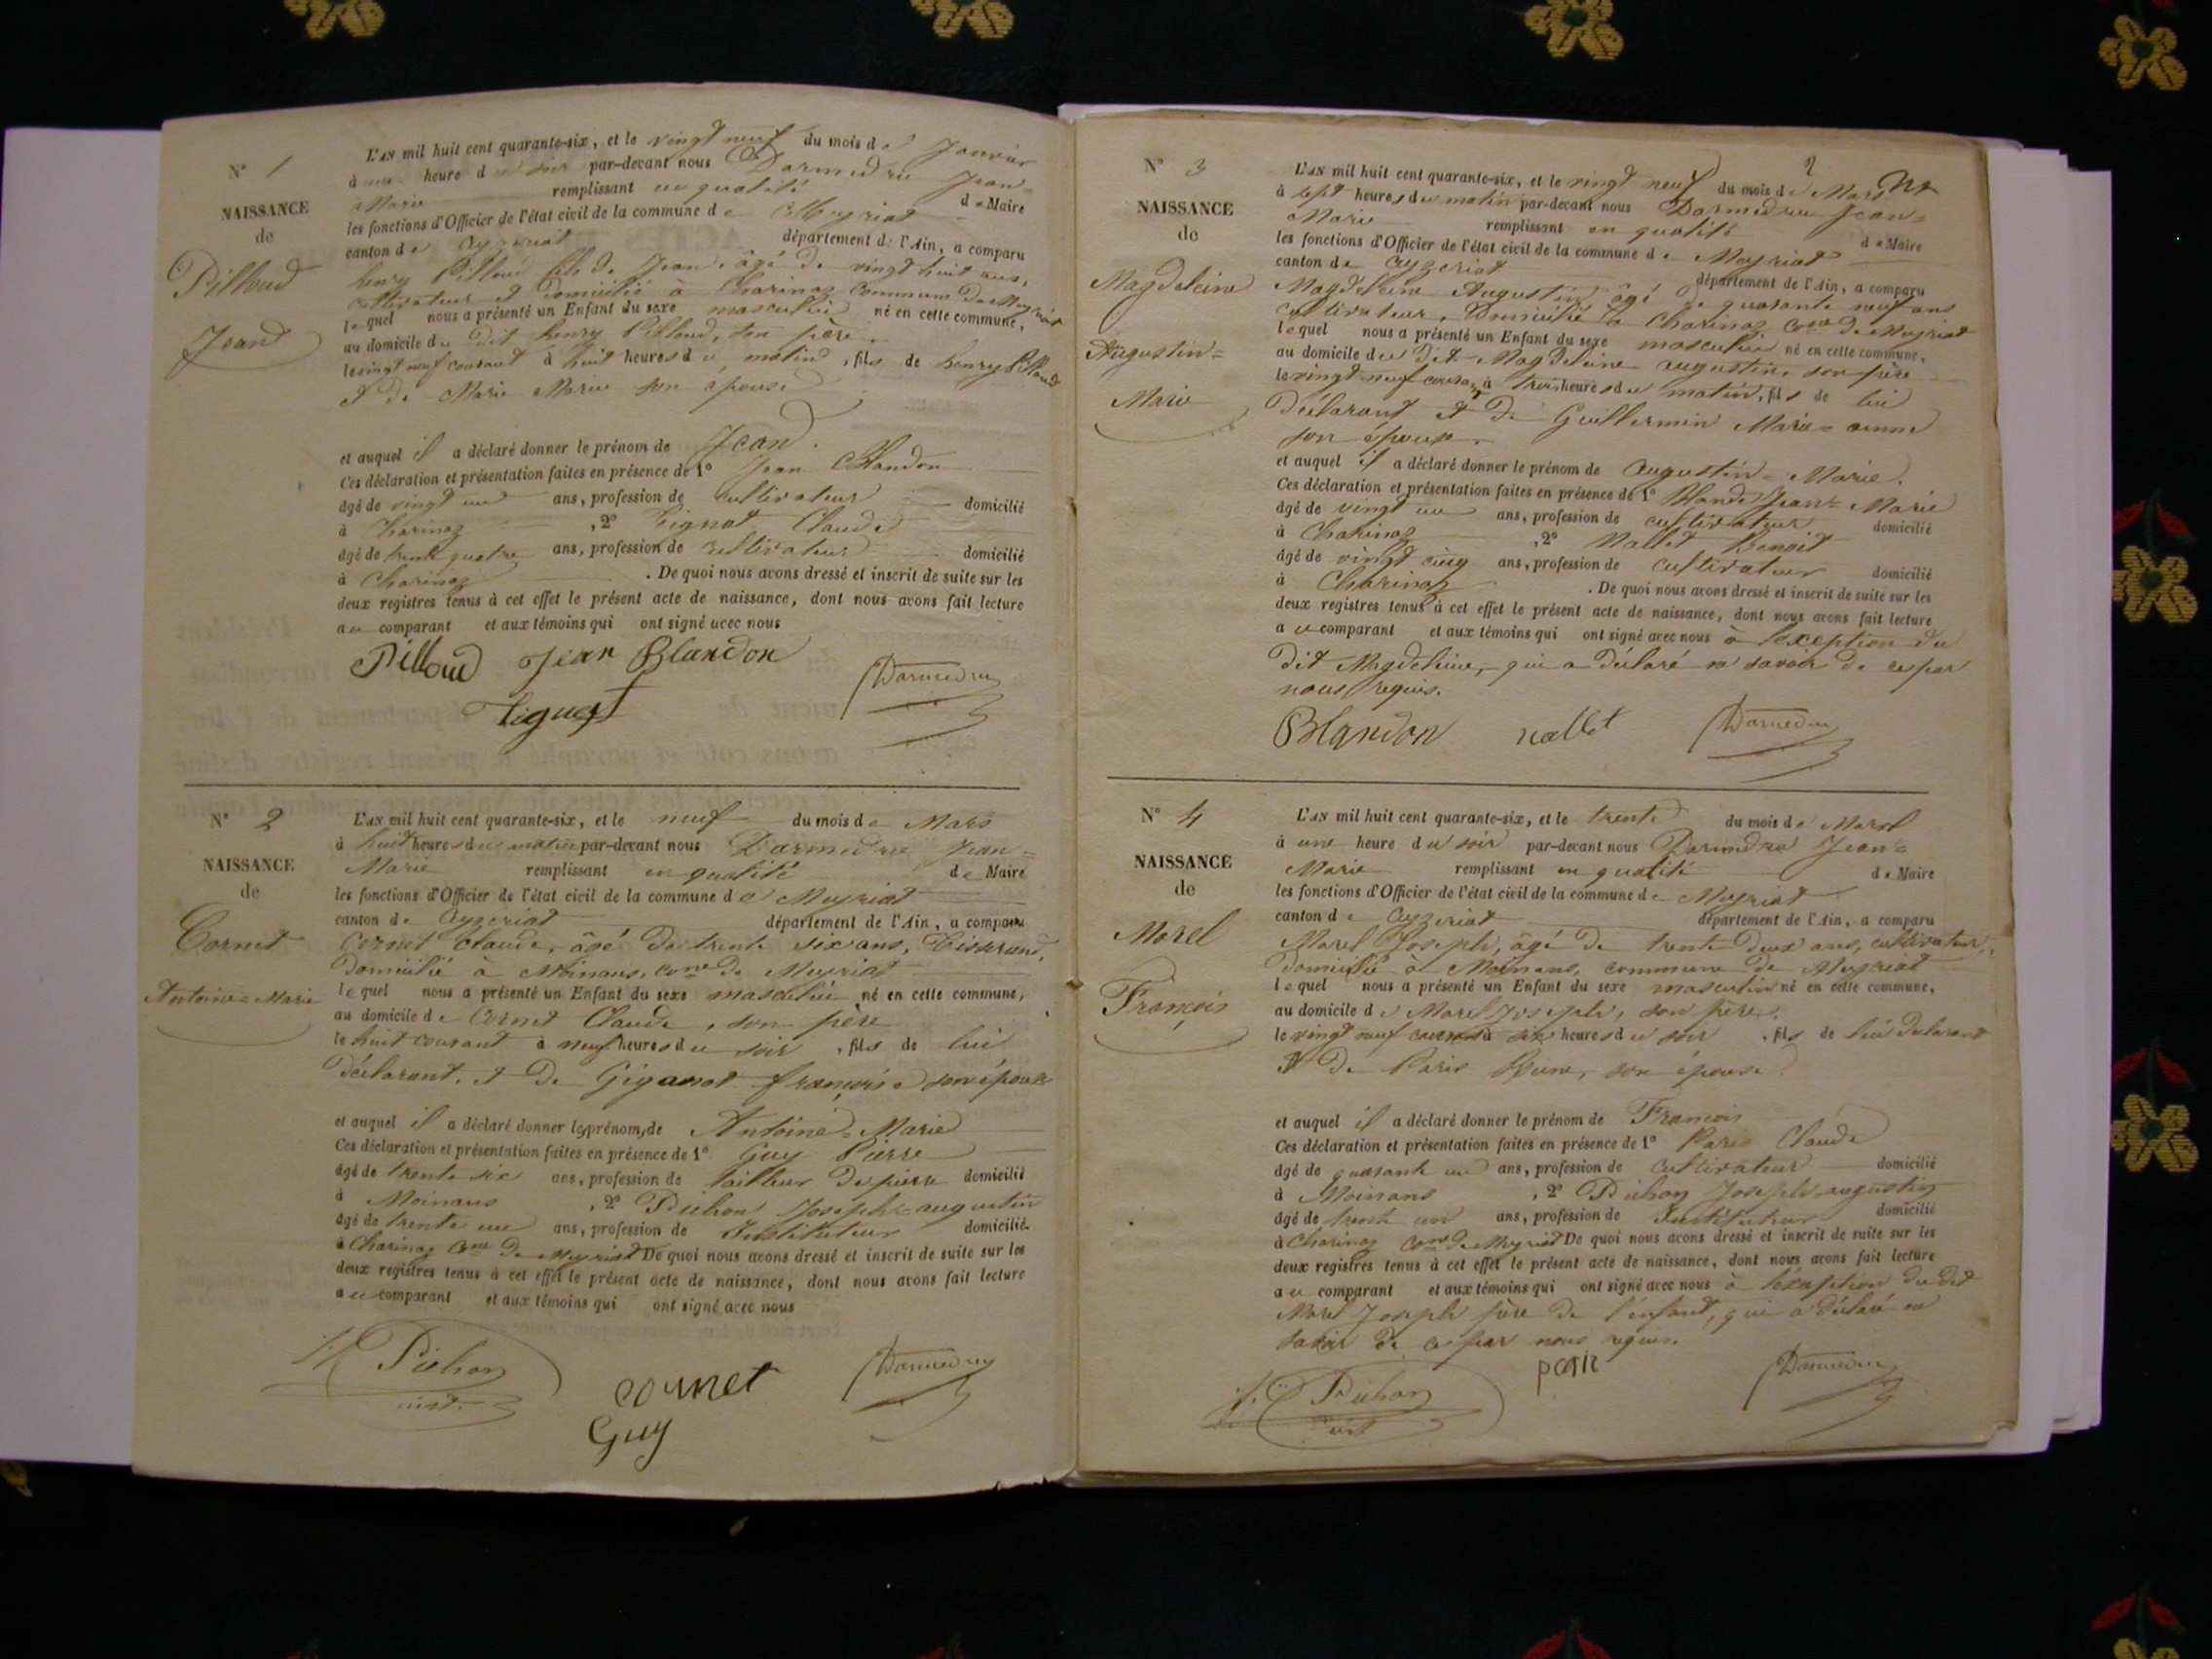 N° 1
NAISSANCE
de
Pilloud
Jean
L'AN mil huit cent quarante-six, et le vingt neuf du mois de Janvier
à une heure du soir par-devant nous Darmedru Jean=
Marie remplissant en qualité de Maire
les fonctions d'Officier de l'état civil de la commune de Meyriat
canton de Ceyzeriat département de l'Ain, a comparu
henry Pilloud fils de Jean, âgé de vingt huit ans,
cultivateur et domicilié à Charinaz commune de Meyriat
lequel nous a présenté un Enfant du sexe masculin né en cette commune,
au domicile du dit henry Pilloud, son père
le vingt neuf courant à huit heures du matin, fils de henry Pilloud
et de Marie son épouse
et auquel il a déclaré donner le prénom de Jean.
Ces déclaration et présentation faites en présence de 1° Jean Blandon
âgé de vingt un ans, profession de cultivateur domicilié
à Charinaz, 2° Tignat Claude
âgé de trente quatre ans, profession de cultivateur domicilié
à Charinaz. De quoi nous avons dressé et inscrit de suite sur les
deux registres tenus à cet effet le présent acte de naissance, dont nous avons fait lecture
au comparant et aux témoins qui ont signé avec nous
Pilloud Jean Blandon
Darmedru
N° 2
NAISSANCE
de
Cornet
Antoine=Marie
L'AN mil huit cent quarante-six, et le neuf du mois de Mars
à huit heures du matin par-devant nous Darmedru Jean=
Marie remplissant en qualité de Maire
les fonctions d'Officier de l'état civil de la commune de Meyriat
canton de Ceyzeriat département de l'Ain, a comparu
Cornet Claude, âgé de trente six ans, Tisserand,
domicilié à Moinans, cone de Meyriat
lequel nous a présenté un Enfant du sexe masculin né en cette commune,
au domicile de Cornet Claude, son père
le huit courant à neuf heures du soir, fils de lui
déclarant, et de Giganot françoise son épouse
et auquel il a déclaré donner les prénoms de Antoine=Marie
Ces déclaration et présentation faites en présence de 1° Guy Pierre
âgé de trente six ans, profession de tailleur de pierre domicilié
à Moinans, 2° Pichon Joseph=augustin
âgé de trente un ans, profession de Instituteur domicilié
à Charinaz cone de Meyriat De quoi nous avons dressé et inscrit de suite sur les
deux registres tenus à cet effet le présent acte de naissance, dont nous avons fait lecture
au comparant et aux témoins qui ont signé avec nous
Pichon
inst.
cornet
Guy
Darmedru
2
N° 3
NAISSANCE
de
Magdeleine
Augustin=
Marie
L'AN mil huit cent quarante-six, et le vingt neuf du mois de Mars
à sept heures du matin par-devant nous Darmedru Jean=
Marie remplissant en qualité de Maire
les fonctions d'Officier de l'état civil de la commune de Meyriat
canton de Ceyzeriat département de l'Ain, a comparu
Magdeleine Augustin âgé de quarante neuf ans
cultivateur, Domicilié à Charinaz cone de Meyriat
lequel nous a présenté un Enfant du sexe masculin né en cette commune,
au domicile du dit Magdeleine augustin, son père
le vingt neuf courant à trois heures du matin, fils de lui
déclarant et de Guillermin Marie=anne
son épouse.
et auquel il a déclaré donner le prénom de augustin=Marie.
Ces déclaration et présentation faites en présence de 1° Jean=Marie
âgé de vingt un ans, profession de cultivateur domicilié
à Charinaz, 2° Nallet Benoit
âgé de vingt cinq ans, profession de cultivateur domicilié
à Charinaz. De quoi nous avons dressé et inscrit de suite sur les
deux registres tenus à cet effet le présent acte de naissance, dont nous avons fait lecture
au comparant et aux témoins qui ont signé avec nous à l'exception du
dit Magdeleine, qui a déclaré ne savoir de ce par
nous requis.
Blandon nallet Darmedru
N° 4
NAISSANCE
de
Morel
François
L'AN mil huit cent quarante-six, et le trente du mois de Mars
à une heure du soir par-devant nous Darmedru Jean=
Marie remplissant en qualité de Maire
les fonctions d'Officier de l'état civil de la commune de Meyriat
canton de Ceyzeriat département de l'Ain, a comparu
Morel Joseph, âgé de trente deux ans, cultivateur,
domicilié à Moinans, commune de Meyriat
lequel nous a présenté un Enfant du sexe masculin né en cette commune,
au domicile de Morel Joseph, son père,
le vingt neuf courant à six heures du soir, fils de lui déclarant
et de Paris son épouse
et auquel il a déclaré donner le prénom de François
Ces déclaration et présentation faites en présence de 1° Paris Claude
âgé de quarante un ans, profession de Cultivateur domicilié
à Moinans, 2° Pichon Joseph augustin
âgé de trente un ans, profession de Instituteur domicilié
à Charinaz cone de Meyriat De quoi nous avons dressé et inscrit de suite sur les
deux registres tenus à cet effet le présent acte de naissance, dont nous avons fait lecture
au comparant et aux témoins qui ont signé avec nous à l'exception du dit
Morel Joseph père de l'enfant, qui a déclaré ne
savoir de ce par nous requis.
Pichon
inst
Darmedru